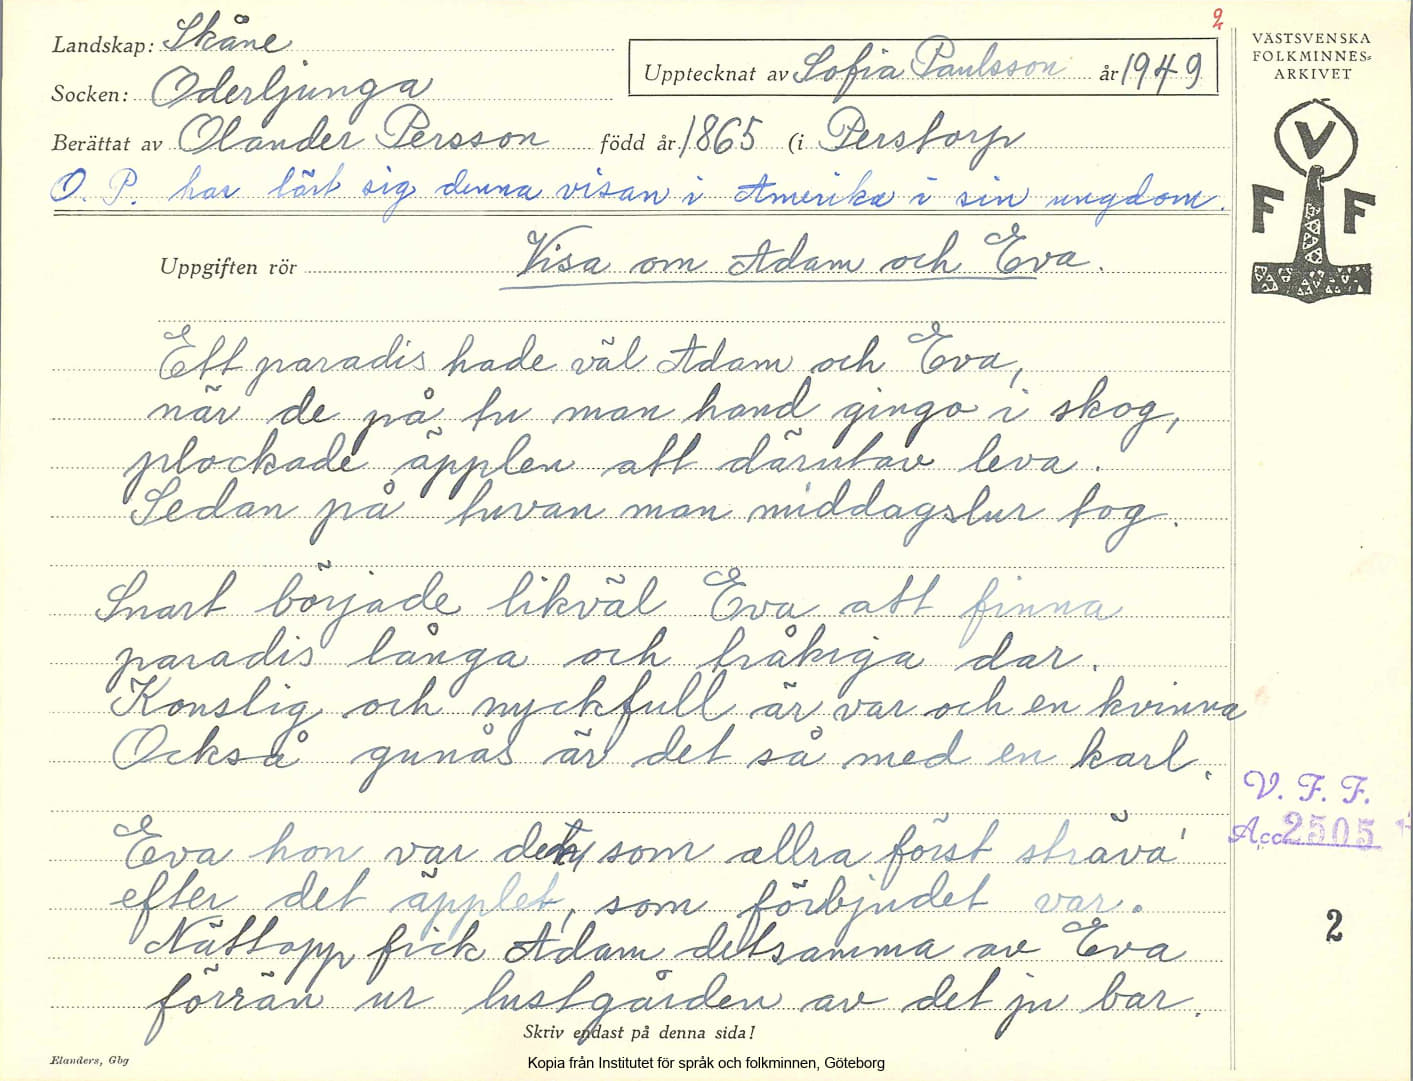 2
Landskap: Skåne
Upptecknat av Sofia Paulsson år 1949
VÄSTSVENSKA
FOLKMINNES-
ARKIVET
Socken: Oderljunga
Berättat av Olander Persson född år 1865 (i Perstorp
O. P. har lärt sig denna visan i Amerika i sin ungdom.
V
F F
Uppgiften rör Visa om Adam och Eva.
Ett paradis hade väl Adam och Eva,
när de på tu man hand gingo i skog,
plockade äpplen att därutav leva.
Sedan på tuvan man middagslur tog.
Snart började likväl Eva att finna
paradis långa och tråkiga dar.
Konslig och nyckfull är var och en kvinna
Också gunås är det så med en karl.
V. F. F.
Acc. 2505
Eva hon var det, som allra först sträva'
efter det äpplet, som förbjudet var.
2
Nättopp fick Adam detsamma av Eva
förrän ur lustgården av det ju bar.
Skriv endast på denna sida!
Elanders, Gbg
Kopia från Institutet för språk och folkminnen, Göteborg